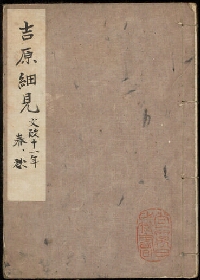 吉原細見
文政十一年
春、秋